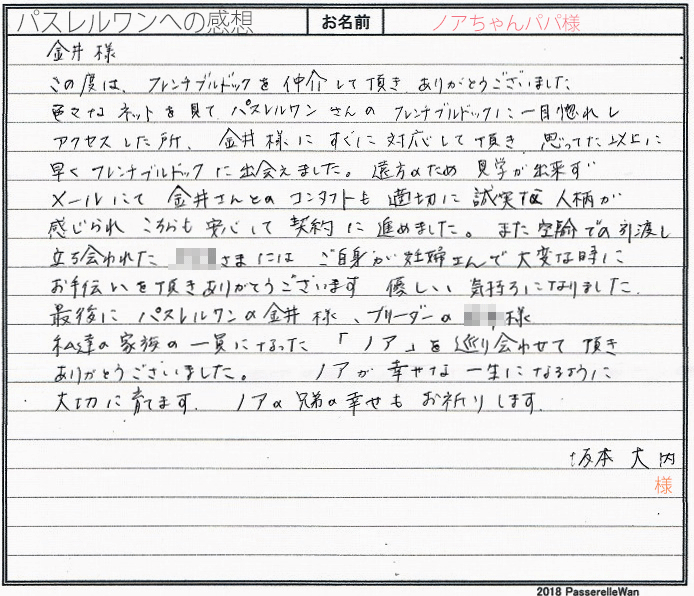 パスレルワンへの感想 お名前 ノアちゃんパパ様
金井様
この度は、フレンチブルドックを仲介して頂き ありがとうございました
色々な ネットを見て、パスレルワン さんの フレンチブルドックに一目惚れし
アクセスした所、金井様に すぐに 対応して頂き 思ってた以上に
早く フレンチブルドックに出会えました。遠方のため 見学が出来ず
メールにて 金井さんとのコンタクトも 適切に 誠実な 人柄が
感じられ こちらも 安心して 契約に 進めました。また 空輸での引渡し
立ち会われた さまには ご自身が 妊婦さんで 大変な時に
お手伝いを頂きありがとうございます 優しい 気持ちになりました.
最後に パスレルワンの金井様、ブリーダーの 様
私達の家族の一員になった「ノア」を巡り会わせて 頂き
ありがとうございました。 ノアが 幸せな 一生になるように
大切に育てます. ノアの兄弟の幸せも お祈りします.
坂本
様
2018 PasserelleWan